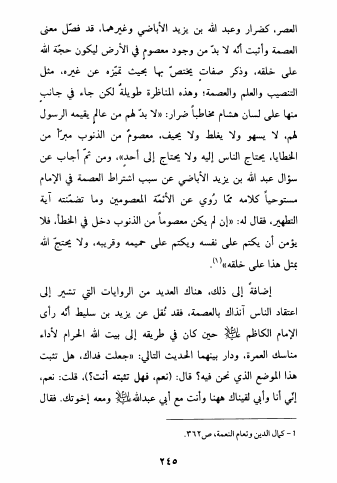 العصر، كضرار وعبد الله بن يزيد الأباضي وغيرهما، قد فصّل معنى
العصمة وأثبت أنّه لا بدّ من وجود معصوم في الأرض ليكون حجّة الله
على خلقه، وذكر صفاتٍ يختصّ بها بحيث تميّزه عن غيره، مثل
التنصيب والعلم والعصمة؛ وهذه المناظرة طويلة لكن جاء في جانبٍ
منها على لسان هشام مخاطباً ضرار: «لا بدّ لهم من عالمٍ يقيمه الرسول
لهم، لا يسهو ولا يغلط ولا يحيف، معصومٌ من الذنوب مبرّأ من
الخطايا، يحتاج الناس إليه ولا يحتاج إلى أحدٍ»، ومن ثمّ أجاب عن
سؤال عبد الله بن يزيد الأباضي عن سبب اشتراط العصمة في الإمام
مستوحياً كلامه ممّا رُوي عن الأئمّة المعصومين وما تضمّنته آية
التطهير، فقال له: «إن لم يكن معصوماً من الذنوب دخل في الخطأ، فلا
يؤمن أن يكتم على نفسه ويكتم على حميمه وقريبه، ولا يحتجّ الله
بمثل هذا على خلقه»(١).
إضافةً إلى ذلك، هناك العديد من الروايات التي تشير إلى
اعتقاد الناس آنذاك بالعصمة، فقد نُقل عن يزيد بن سليط أنّه رأى
الإمام الكاظم ﷺ حين كان في طريقه إلى بيت الله الحرام لأداء
مناسك العمرة، ودار بينهما الحديث التالي: «جعلت فداك، هل تثبت
هذا الموضع الذي نحن فيه؟ قال: (نعم، فهل تثبته أنت؟)، قلت: نعم،
إنّي أنا وأبي لقيناك ههنا وأنت مع أبي عبدالله ﷺ ومعه إخوتك. فقال
١- كمال الدين وتمام النعمة، ص٣٦٢.
٢٤٥